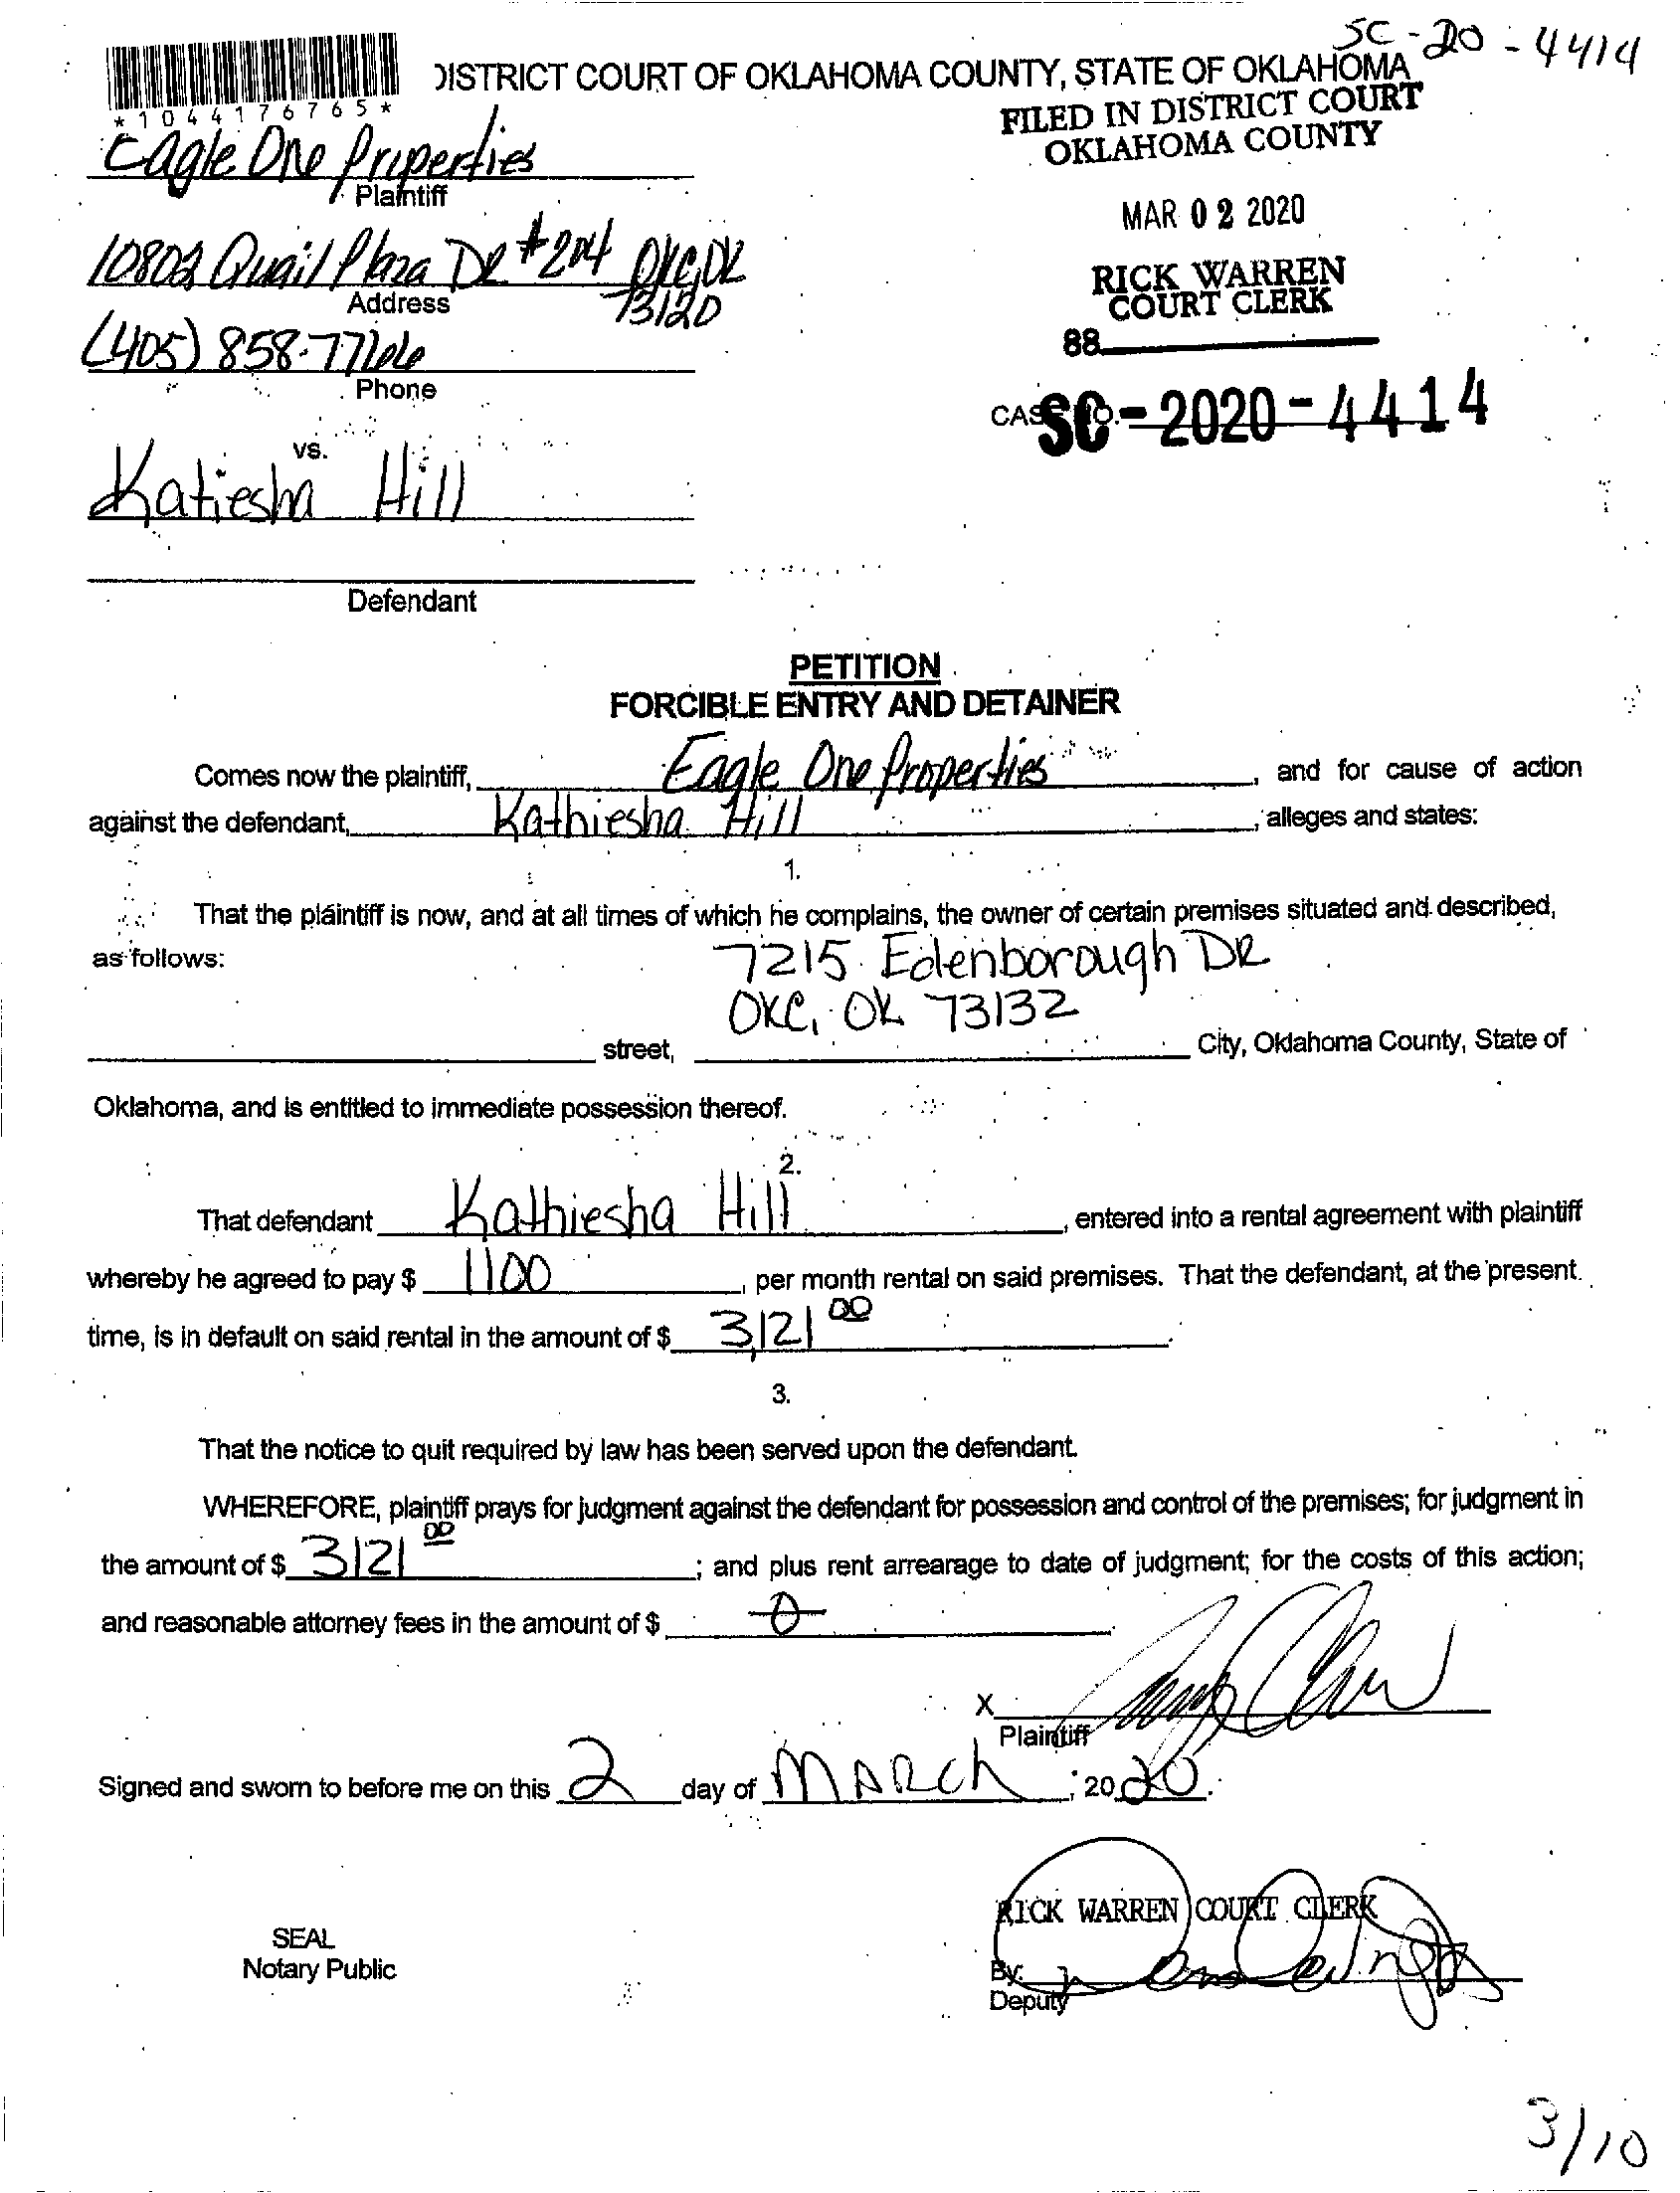 SC-20-4414
DISTRICT COURT OF OKLAHOMA COUNTY, STATE OF OKLAHOMA
*1044176765*
FILED IN DISTRICT COURT
OKLAHOMA COUNTY
Eagle One Properties
Plaintiff
MAR 02 2020
10802 Quail Plaza DR #204 OKC, OK
73120
Address
RICK WARREN
COURT CLERK
(405) 858-7766
88
Phone
CASE NO. SC-2020-4414
vs.
Katiesha Hill
Defendant
PETITION
FORCIBLE ENTRY AND DETAINER
Comes now the plaintiff, Eagle One Properties, and for cause of action
against the defendant, Kathiesha Hill, alleges and states:
1.
That the plaintiff is now, and at all times of which he complains, the owner of certain premises situated and described,
as follows: 7215 Edenborough DR
OKC, OK 73132
street, City, Oklahoma County, State of
Oklahoma, and is entitled to immediate possession thereof.
2.
That defendant Kathiesha Hill, entered into a rental agreement with plaintiff
whereby he agreed to pay $ 1100, per month rental on said premises. That the defendant, at the present
time, is in default on said rental in the amount of $ 3,121 00.
3.
That the notice to quit required by law has been served upon the defendant.
WHEREFORE, plaintiff prays for judgment against the defendant for possession and control of the premises; for judgment in
the amount of $ 3121 00; and plus rent arrearage to date of judgment; for the costs of this action;
and reasonable attorney fees in the amount of $ 0
X
Plaintiff
Signed and sworn to before me on this 2 day of MARCh, 2020.
RICK WARREN COURT CLERK
SEAL
Notary Public
By:
Deputy
3/10